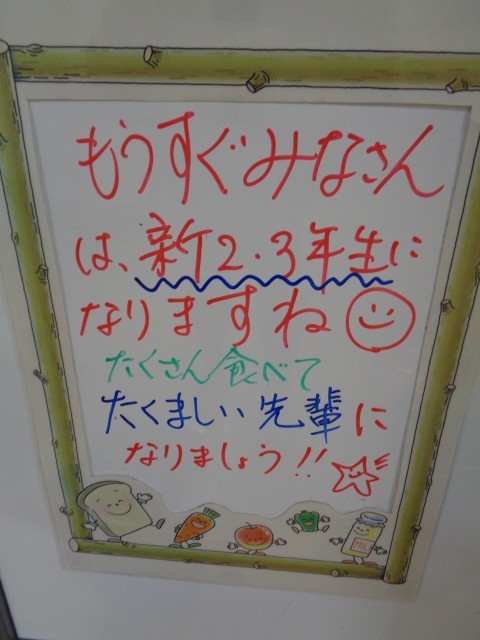 もうすぐみなさん
は、新2・3年生に
なりますね
たくさん食べて
たくましい先輩に
なりましょう!!